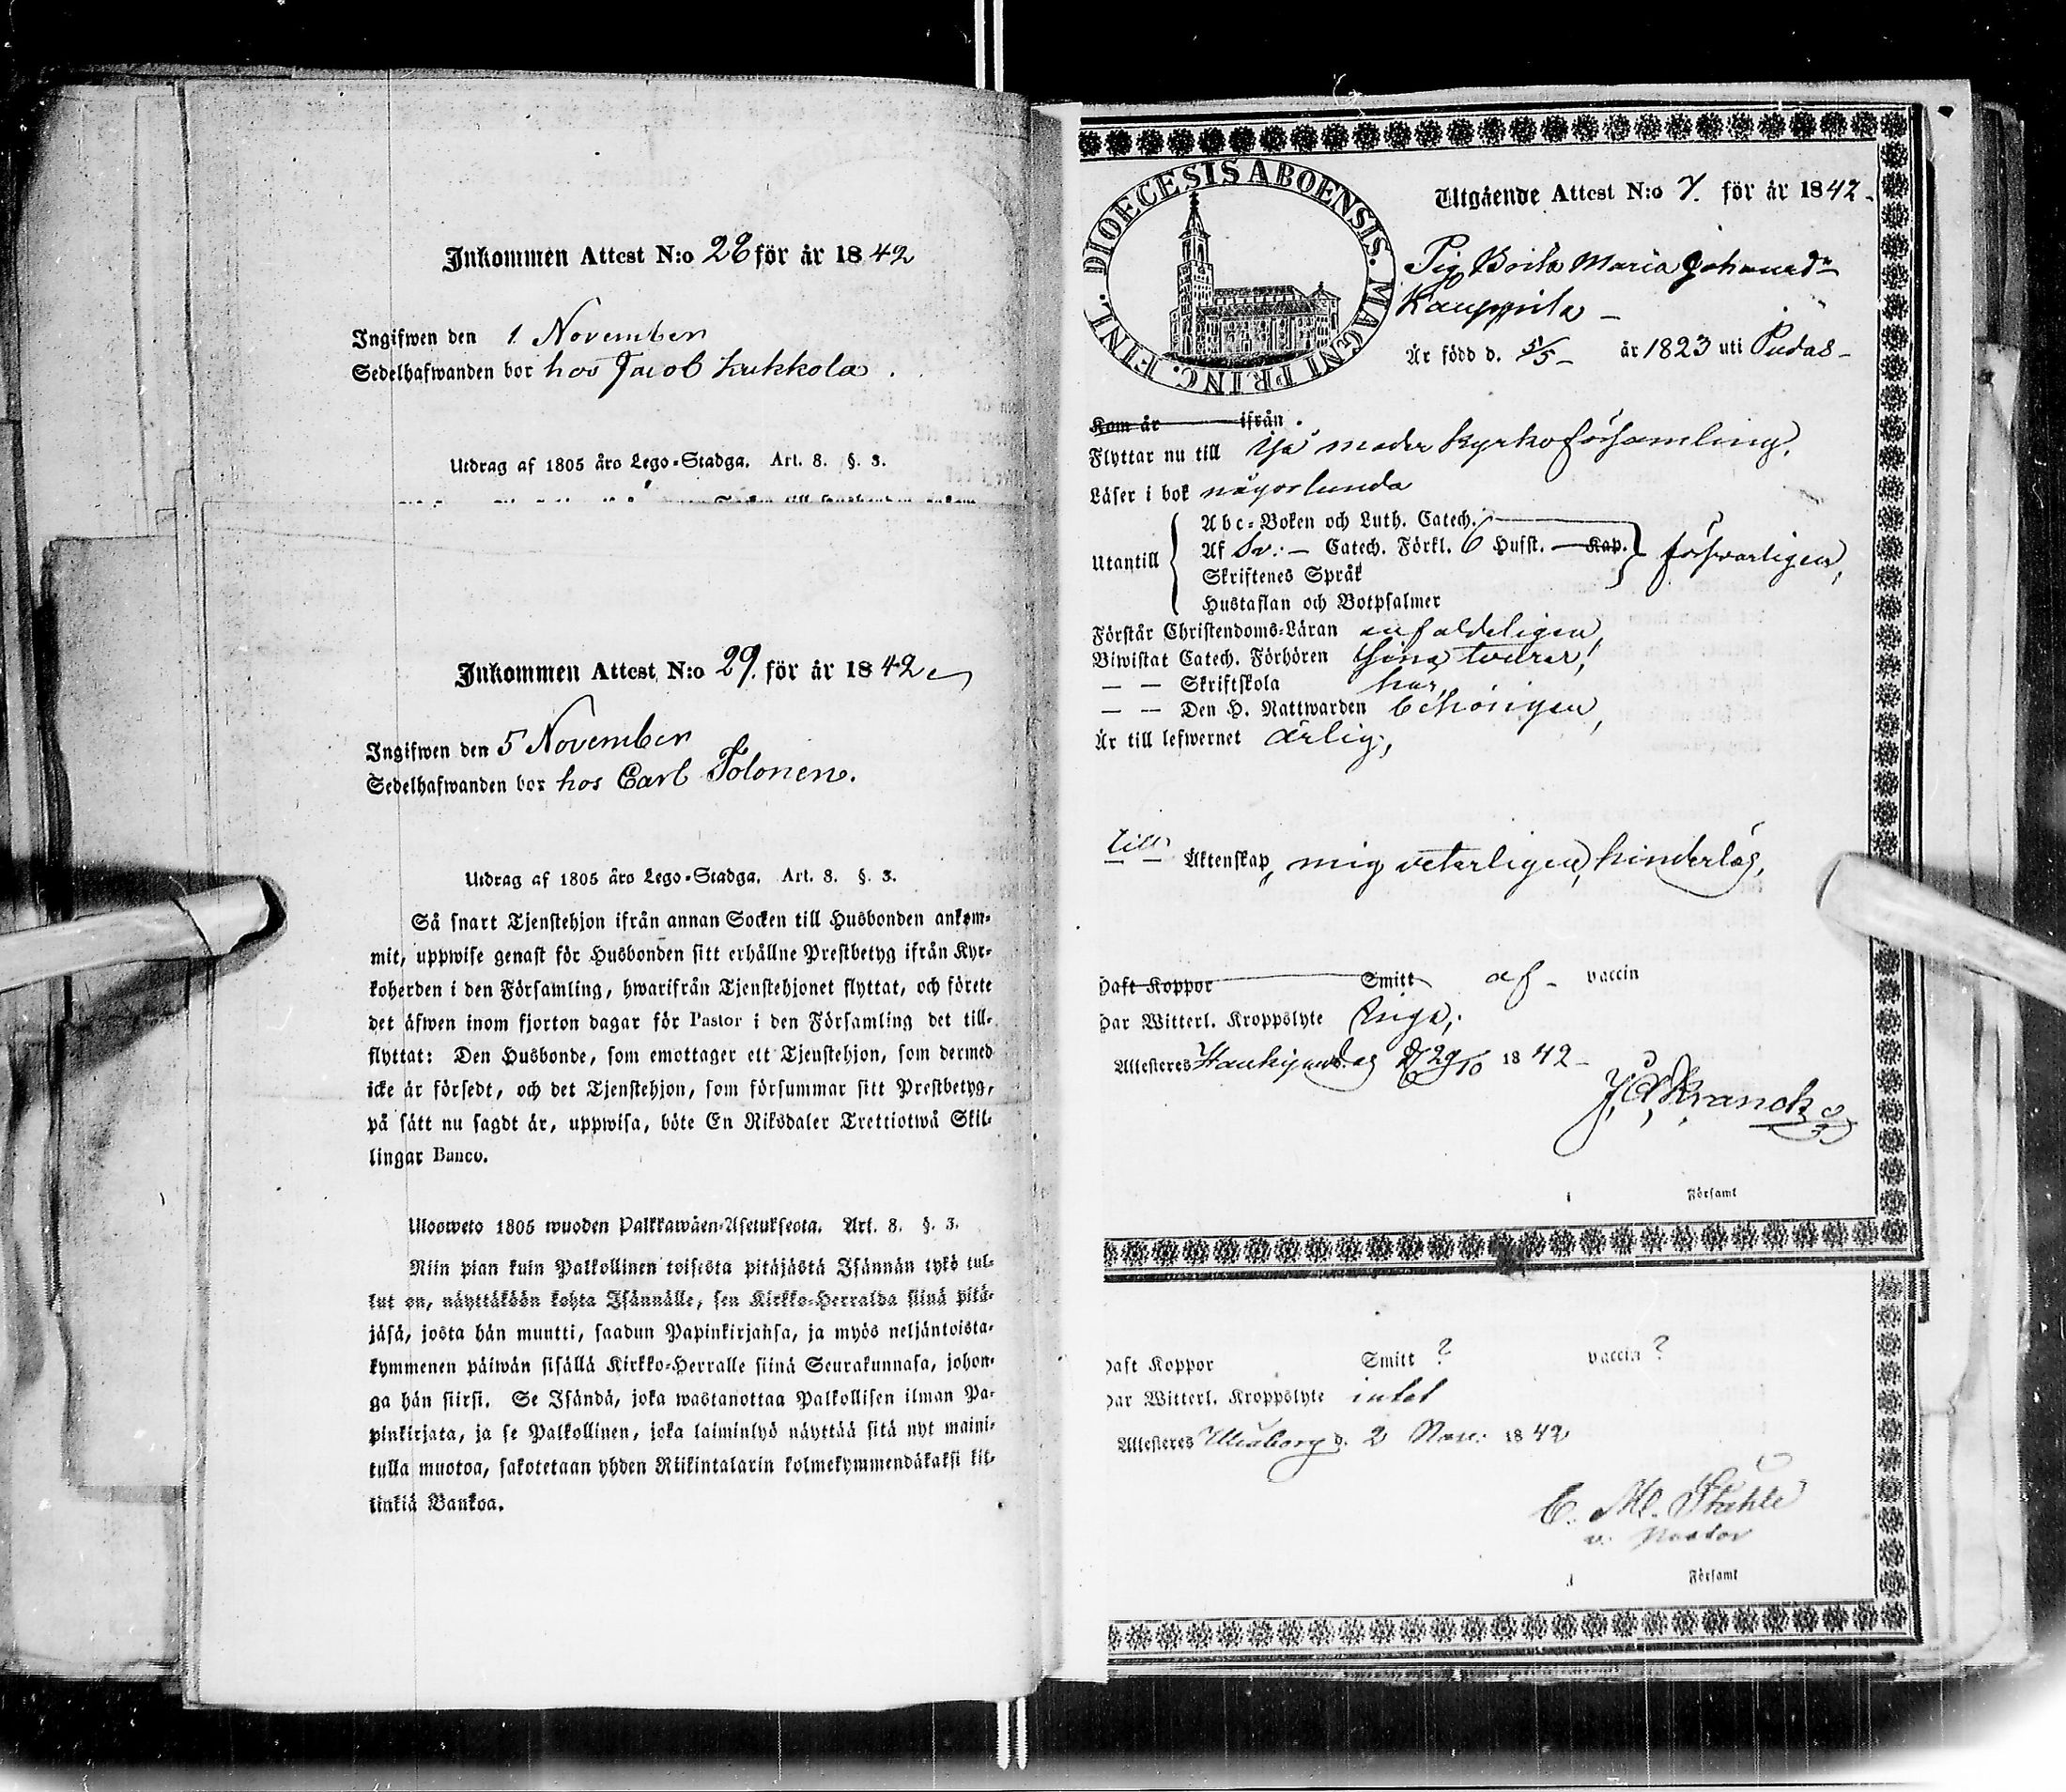 Inkommen Attest N:o 28 för år 1842
Ingifwen den 1 November
Sedelhafwanden bor hos Jacob Kukkola.
Utdrag af 1805 års Lego-Stadga. Art. 8. §. 3.
Inkommen Attest N:o 29. för år 1842
Ingifwen den 5 November
Sedelhafwanden bor hos Carl Tolonen.
Utdrag af 1805 års Lego-Stadga. Art. 8. §. 3.
Så snart Tjenstehjon ifrån annan Socken till Husbonden ankom-
mit, uppwise genast för Husbonden sitt erhållne Prestbetyg ifrån Kyr-
koherden i den Församling, hwarifrån Tjenstehjonet flyttat, och förete
det äfwen inom fjorton dagar för Pastor i den Församling det till-
flyttat: Den Husbonde, som emottager ett Tjenstehjon, som dermed
icke är försedt, och det Tjenstehjon, som försummar sitt Prestbetyg,
på sätt nu sagdt är, uppwisa, böte En Riksdaler Trettiotwå Skil-
lingar Banco.
Ulosweto 1805 wuoden Palkkawäen-Asetuksesta. Art. 8. §. 3.
Niin pian kuin Palkollinen toisesta pitäjästä Isännän tykö tul-
lut on, näyttäköön kohta Isännälle, sen Kirkko-Herralda siinä pitä-
jäsä, josta hän muutti, saadun Papinkirjansa, ja myös neljäntoista-
kymmenen päiwän sisällä Kirkko-Herralle siinä Seurakunnasa, johon-
ga hän siirsi. Se Isändä, joka wastanottaa Palkollisen ilman Pa-
pinkirjata, ja se Palkollinen, joka laiminlyö näyttää sitä nyt maini-
tulla muotoa, sakotetaan yhden Riikintalarin kolmekymmendäkaksi kil-
linkiä Bankoa.
DIOECESIS ABOENSIS. MAGNI PRINC. FINL.
Utgående Attest N:o 7. för år 1842.
Pig. Brita Maria Johansdr
Kauppila
Är född d. /5 år 1823 uti Pudas
Kom år ifrån
Flyttar nu till Ijå moder kyrkoförsamling,
Läser i bok någorlunda
Utantill
Abc-Boken och Luth. Catech.
Af Sv. Catech. Förkl. 6 Husst. Kap. försvarligen,
Skriftenes Språk
Hustaflan och Botpsalmer
Förstår Christendoms-Läran enfaldeligen,
Biwistat Catech. Förhören
— — Skriftskola har,
— — Den H. Nattwarden behörigen,
Är till lefwernet ärlig,
till Äktenskap, mig veterligen, hinderlös,
Haft Koppor Smitt af vaccin
Har Witterl. Kroppslyte Inga,
Attesteres Haukipudas d. 29/10 1842
J. A. Kranck
Församl
Haft Koppor Smitt ? vaccin ?
Har Witterl. Kroppslyte intet
Attesteres Uleåborg d. 2 Nov. 1842
C. M. Ståhle
v. Pastor
Församl